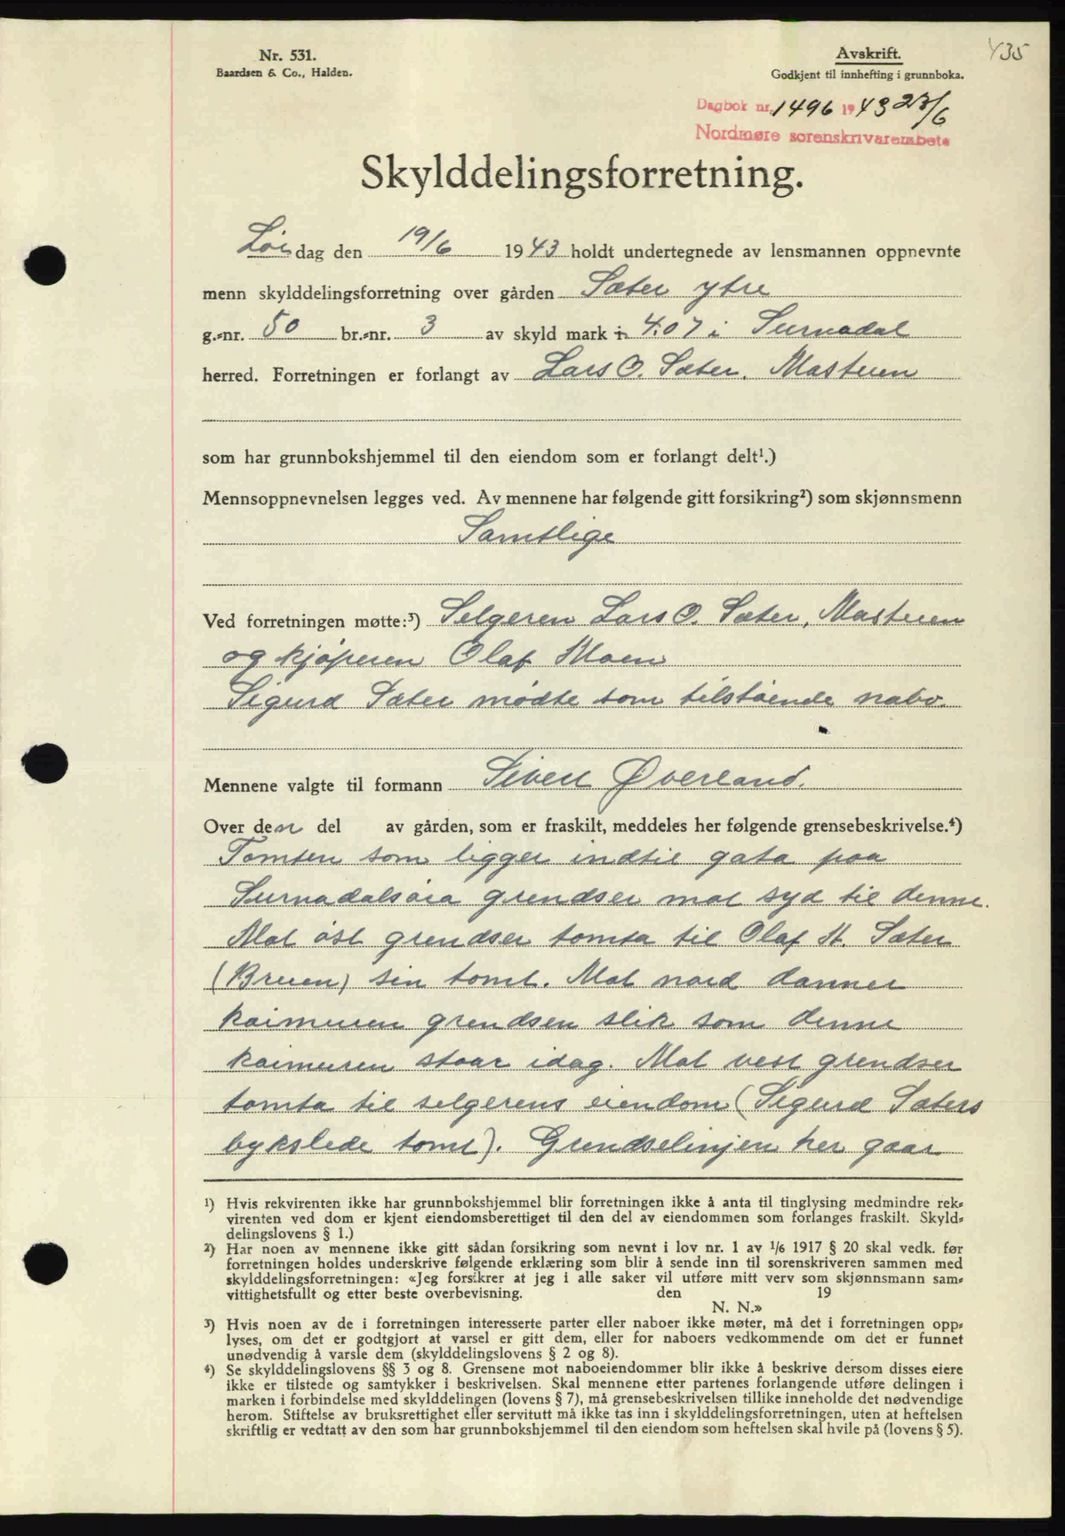 435
Nr. 531.
Baardsen & Co., Halden.
Avskrift.
Godkjent til innhefting i grunnboka.
Dagbok nr. 1496 1943 23/6
Nordmøre sorenskrivarembete
Skylddelingsforretning.
Lørdag den 19/6 1943 holdt undertegnede av lensmannen oppnevnte
menn skylddelingsforretning over gården Sæter ytre
g.-nr. 50 br.-nr. 3 av skyld mark 4.07 i Surnadal
herred. Forretningen er forlangt av Lars O. Sæter, Mastuen
som har grunnbokshjemmel til den eiendom som er forlangt delt¹.)
Mennsoppnevnelsen legges ved. Av mennene har følgende gitt forsikring²) som skjønnsmenn
Samtlige
Ved forretningen møtte:³) Selgeren Lars O. Sæter, Mastuen
og kjøperen Olaf Moen
Sigurd Sæter mødte som tilstøtende nabo.
Mennene valgte til formann Sivert Øverland.
Over den del av gården, som er fraskilt, meddeles her følgende grensebeskrivelse.⁴)
Tomten som ligger indtil gata paa
Surnadalsøra grendser mot syd til denne.
Mot øst grendser tomta til Olaf H. Sæter
(Bruen) sin tomt. Mot nord danner
kaimuren grendsen slik som denne
kaimuren staar idag. Mot vest grendser
tomta til selgerens eiendom (Sigurd Sæters
bykslede tomt). Grendselinjen her gaar
¹) Hvis rekvirenten ikke har grunnbokshjemmel blir forretningen ikke å anta til tinglysing medmindre rek-
virenten ved dom er kjent eiendomsberettiget til den del av eiendommen som forlanges fraskilt. Skyld-
delingslovens § 1.)
²) Har noen av mennene ikke gitt sådan forsikring som nevnt i lov nr. 1 av 1/6 1917 § 20 skal vedk. før
forretningen holdes underskrive følgende erklæring som blir å sende inn til sorenskriveren sammen med
skylddelingsforretningen: «Jeg forsikrer at jeg i alle saker vil utføre mitt verv som skjønnsmann sam-
vittighetsfullt og etter beste overbevisning. den 19
N. N.»
³) Hvis noen av de i forretningen interesserte parter eller naboer ikke møter, må det i forretningen opp-
lyses, om det er godtgjort at varsel er gitt dem, eller for naboers vedkommende om det er funnet
unødvendig å varsle dem (skylddelingslovens § 2 og 8).
⁴) Se skylddelingslovens §§ 3 og 8. Grensene mot naboeiendommer blir ikke å beskrive dersom disses eiere
ikke er tilstede og samtykker i beskrivelsen. Skal mennene etter partenes forlangende utføre delingen i
marken i forbindelse med skylddelingen (lovens § 7), må grensebeskrivelsen tillike inneholde det nødvendige
herom. Stiftelse av bruksrettighet eller servitutt må ikke tas inn i skylddelingsforretningen, uten at heftelsen
skriftlig er vedtatt av den som har grunnbokshjemmel til den eiendom som heftelsen skal hvile på (lovens § 5).